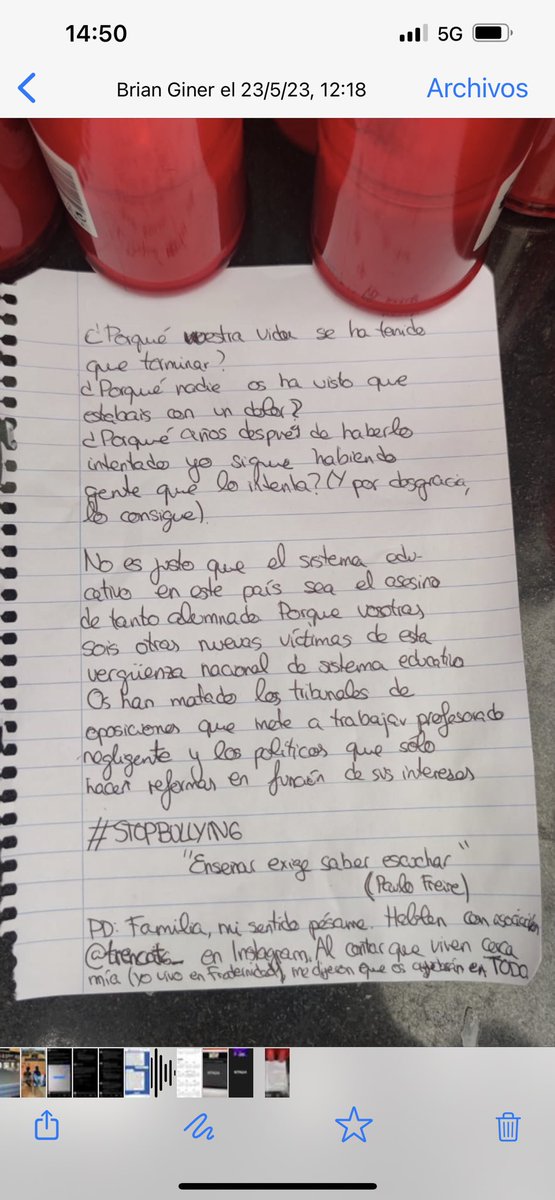 14:50
5G
Brian Giner el 23/5/23, 12:18
Archivos
¿Porqué vuestra vida se ha tenido
que terminar?
¿Porqué nadie os ha visto que
estabais con un dolor?
¿Porqué años después de haberlo
intentado yo sigue habiendo
gente que lo intenta? (Y por desgracia,
lo consigue).
No es justo que el sistema edu-
cativo en este país sea el asesino
de tanto alumnado. Porque vosotras
sois otras nuevas víctimas de esta
vergüenza nacional de sistema educativo
Os han matado los tribunales de
oposiciones que mete a trabajar profesorado
negligente y los políticos que sólo
hacen reformas en función de sus intereses
#STOPBOLLYING
"Enseñar exige saber escuchar"
(Paulo Freire)
PD: Familia, mi sentido pésame. Hablen con asociación
@trencats_ en Instagram. Al contar que viven cerca
mía (yo vivo en Fraternidad), me dijeron que os ayudarán en TODO